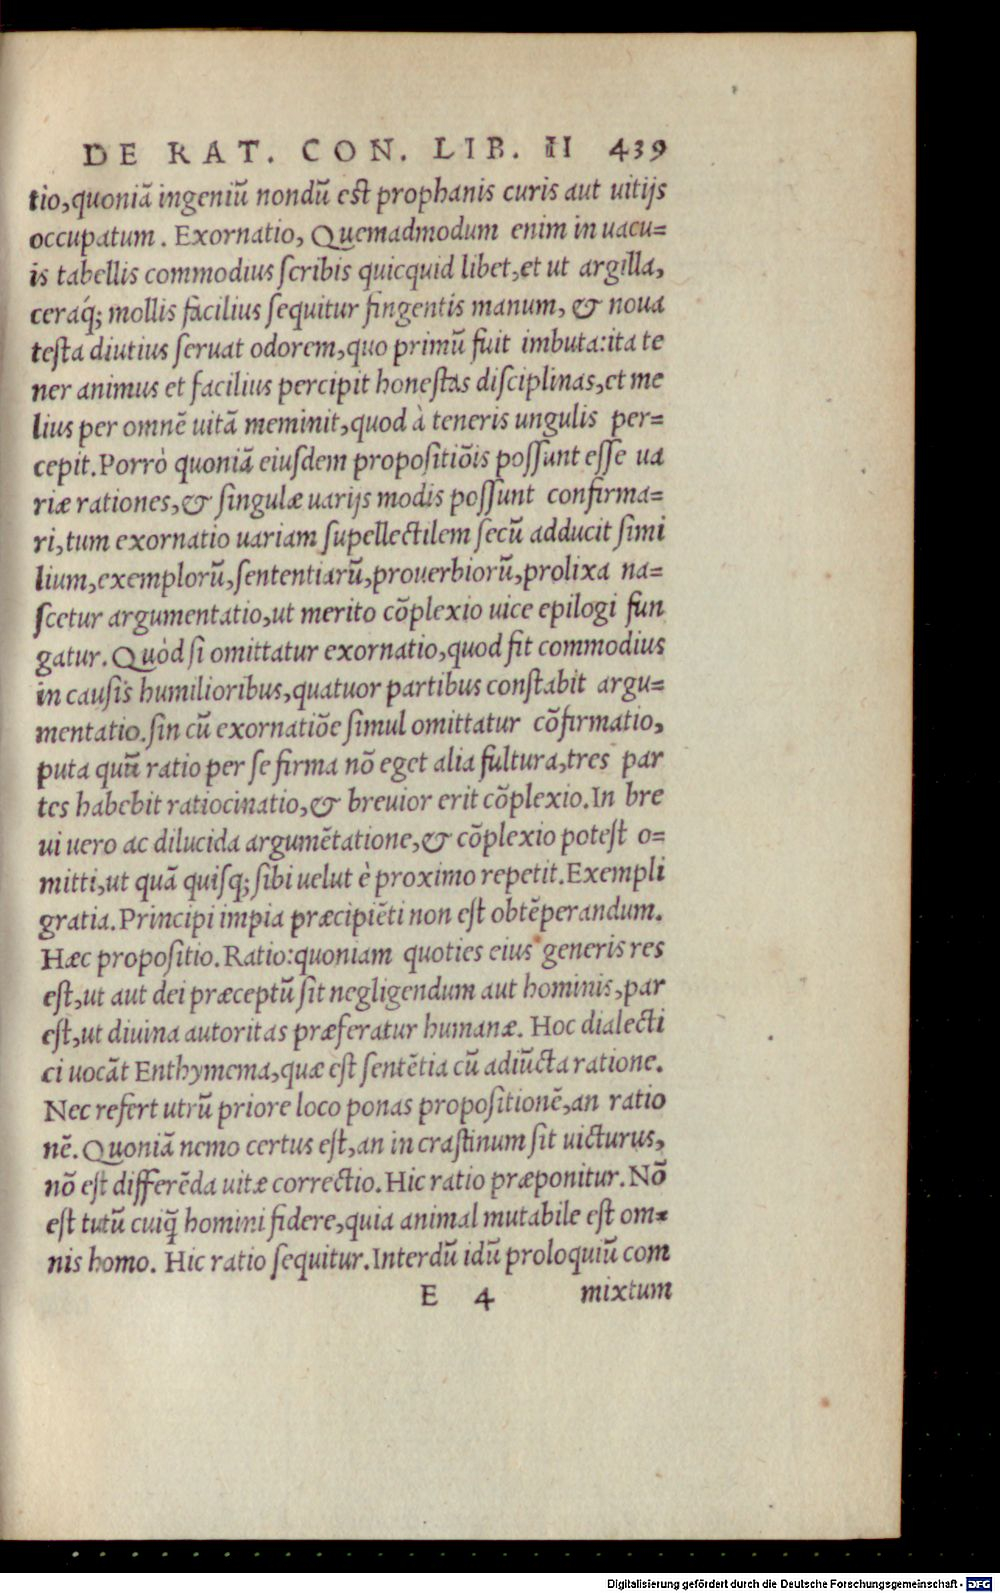 DE RAT. CON. LIB. II 439
tio,quoniā ingeniū nondū est prophanis curis aut uitijs
occupatum. Exornatio, Quemadmodum enim in uacu=
is tabellis commodius ſcribis quicquid libet,et ut argilla,
ceráq́; mollis facilius ſequitur fingentis manum, & noua
teſta diutius ſeruat odorem,quo primū fuit imbuta:ita te
ner animus et facilius percipit honeſtas diſciplinas,et me
lius per omnē uitā meminit,quod à teneris ungulis per=
cepit.Porrò quoniā eiuſdem propoſitiōis poſſunt eſſe ua
riæ rationes,& ſingulæ uarijs modis poſſunt confirma=
ri,tum exornatio uariam ſupellectilem ſecū adducit ſimi
lium,exemplorū,ſententiarū,prouerbiorū,prolixa na=
ſcetur argumentatio,ut merito cōplexio uice epilogi fun
gatur.Quòd ſi omittatur exornatio,quod fit commodius
in cauſis humilioribus,quatuor partibus conſtabit argu=
mentatio.ſin cū exornatiōe ſimul omittatur cōfirmatio,
puta quū ratio per ſe firma nō eget alia fultura,tres par
tes habebit ratiocinatio,& breuior erit cōplexio.In bre
ui uero ac dilucida argumētatione,& cōplexio poteſt o=
mitti,ut quā quiſq; ſibi uelut è proximo repetit.Exempli
gratia.Principi impia præcipiēti non eſt obtēperandum.
Hæc propoſitio.Ratio:quoniam quoties eius generis res
eſt,ut aut dei præceptū ſit negligendum aut hominis,par
eſt,ut diuina autoritas præferatur humanæ. Hoc dialecti
ci uocāt Enthymema,quæ eſt ſentētia cū adiūcta ratione.
Nec refert utrū priore loco ponas propoſitionē,an ratio
nē.Quoniā nemo certus eſt,an in craſtinum ſit uicturus,
nō eſt differēda uitæ correctio.Hic ratio præponitur.Nō
eſt tutū cuiq̄ homini fidere,quia animal mutabile eſt om=
nis homo. Hic ratio ſequitur.Interdū idū proloquiū com
E 4 mixtum
Digitalisierung gefördert durch die Deutsche Forschungsgemeinschaft - DFG